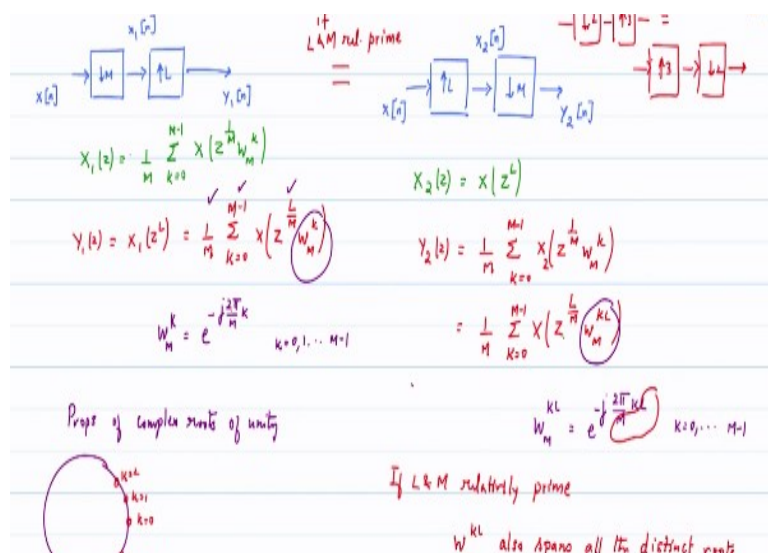 x₁[n]
if
L & M rel. prime
=
x₂[n]
→ ↓2 → ↑3 → =
→ ↑3 → ↓2 →
x[n] → ↓M → ↑L → Y₁[n]
x[n] → ↑L → ↓M → Y₂[n]
X₁(z) = 1/M Σ_{k=0}^{M-1} X(z^{1/M} W_M^k)
Y₁(z) = X₁(z^L) = 1/M Σ_{k=0}^{M-1} X(z^{L/M} W_M^k)
W_M^k = e^{-j 2π/M k} k=0,1,... M-1
X₂(z) = X(z^L)
Y₂(z) = 1/M Σ_{k=0}^{M-1} X₂(z^{1/M} W_M^k)
= 1/M Σ_{k=0}^{M-1} X(z^{L/M} W_M^{kL})
W_M^{kL} = e^{-j 2π/M kL} k=0,... M-1
Props of complex roots of unity
k=2
k=1
k=0
If L & M relatively prime
W^{kL} also spans all the distinct roots